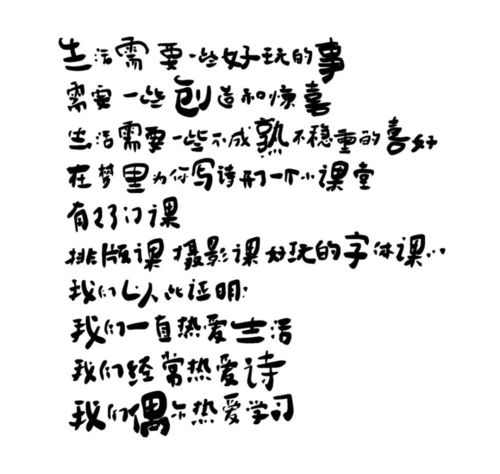 生活需要一些好玩的事
需要一些创造和惊喜
生活需要一些不成熟不稳重的喜好
在梦里为你写诗用一个小课堂
有23门课
排版课摄影课好玩的字体课…
我们以此证明:
我们一直热爱生活
我们经常热爱诗
我们偶尔热爱学习